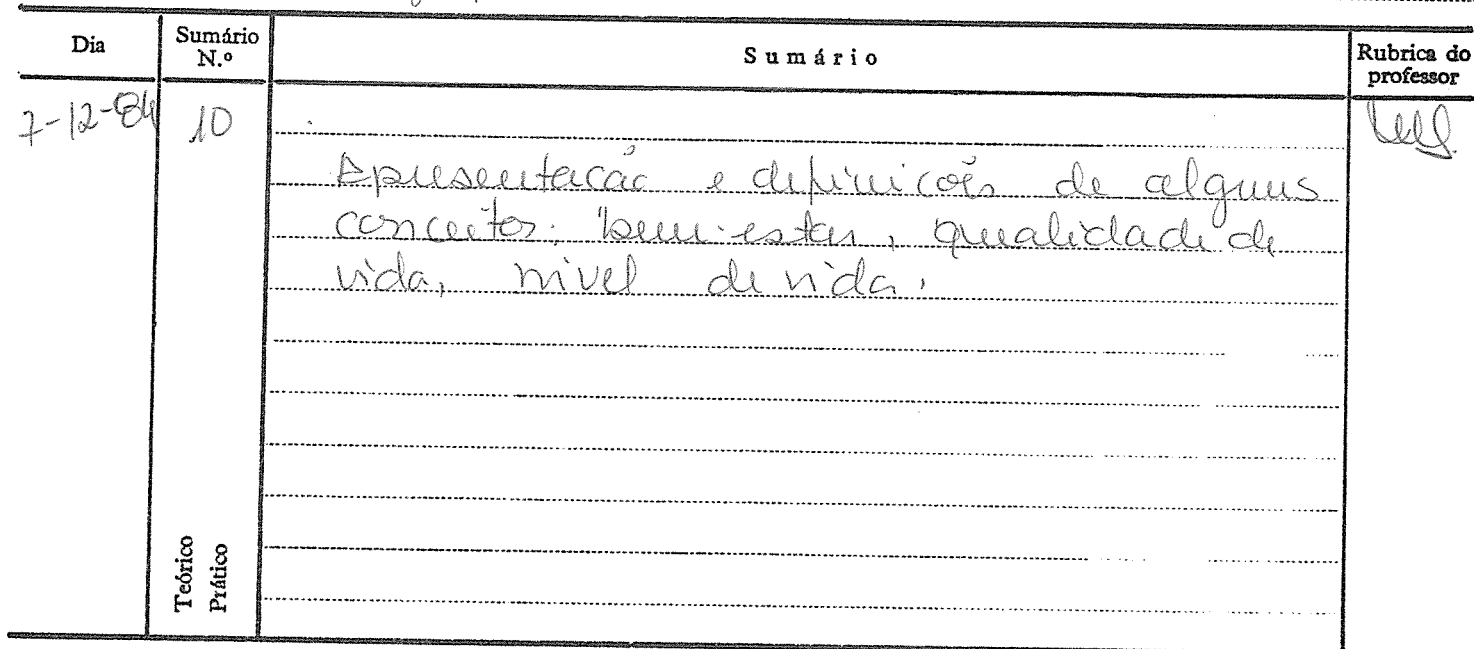 Dia
Sumário N.º
Sumário
Rubrica do professor
7-12-84
10
Apresentação e definições de alguns
conceitos: bem-estar, qualidade de
vida, nível de vida.
Teórico
Prático